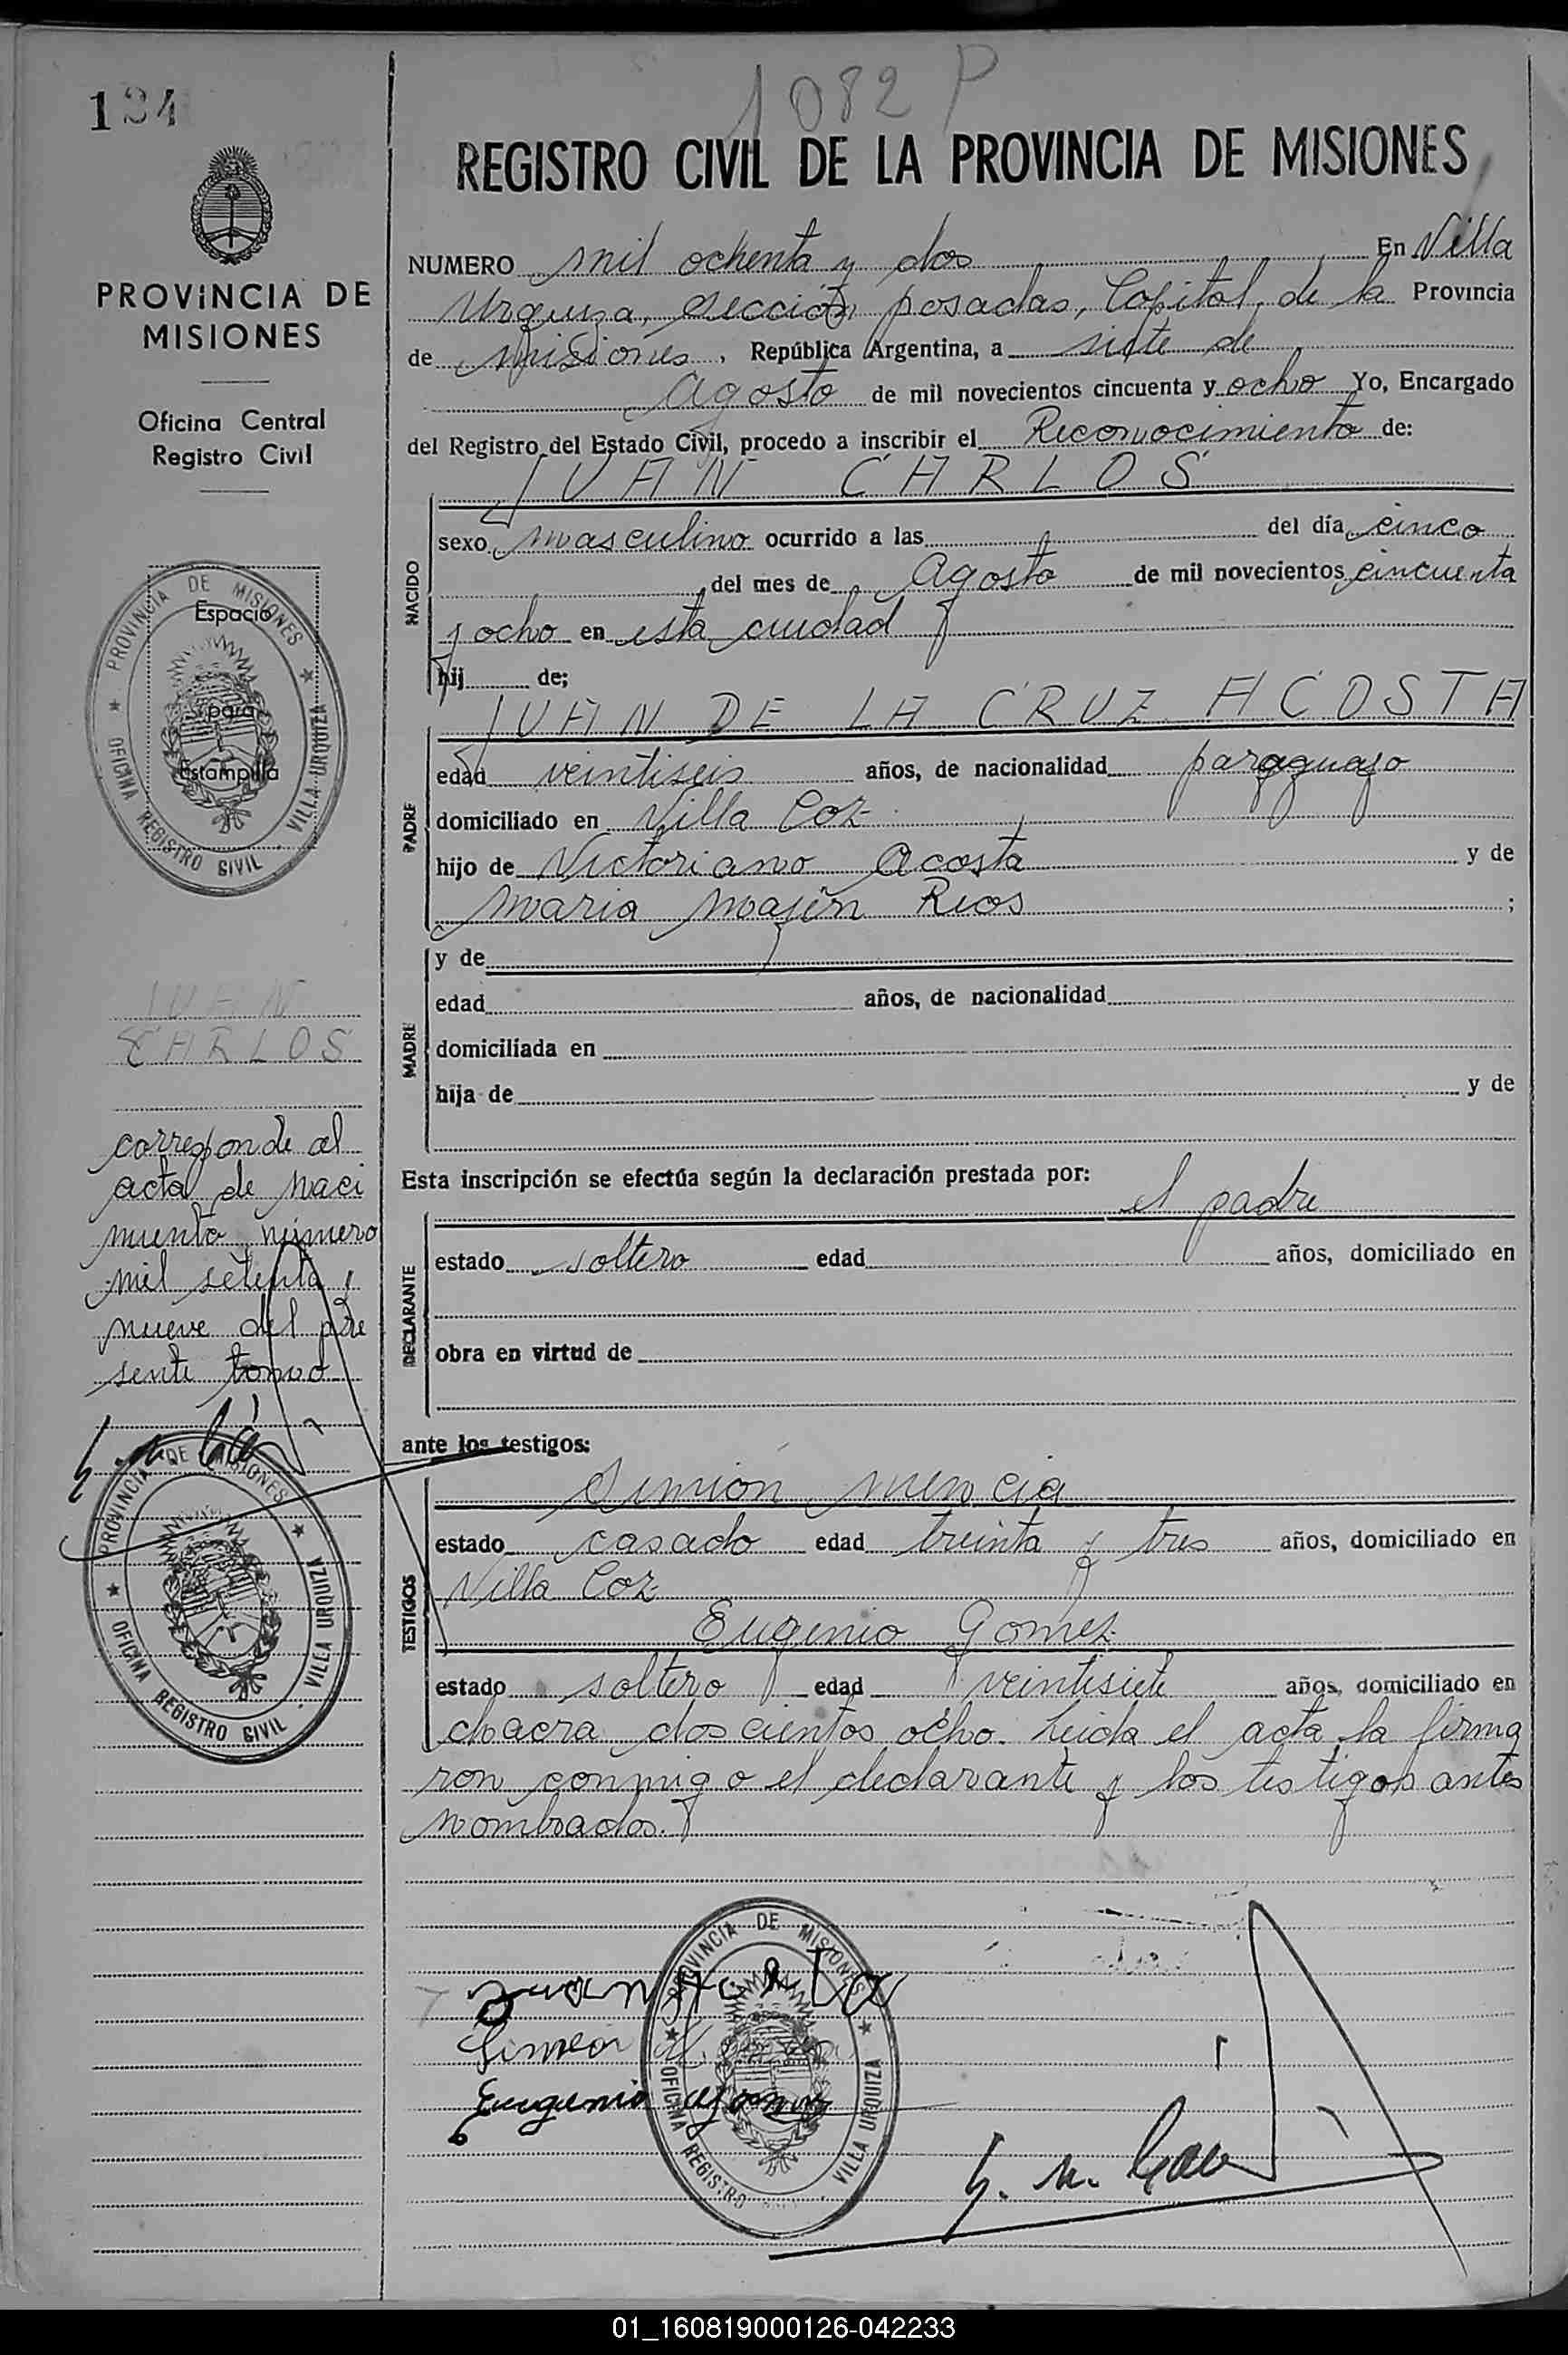 1082 P
134
REGISTRO CIVIL DE LA PROVINCIA DE MISIONES
PROVINCIA DE
MISIONES
Oficina Central
Registro Civil
NUMERO mil ochenta y dos En Villa
Urquiza, sección posadas, Capital, de la Provincia
de Misiones, República Argentina, a siete de
Agosto de mil novecientos cincuenta y ocho Yo, Encargado
del Registro del Estado Civil, procedo a inscribir el Reconocimiento de:
JUAN CARLOS
NACIDO
sexo masculino ocurrido a las del día cinco
del mes de Agosto de mil novecientos cincuenta
y ocho en esta ciudad
hij de;
JUAN DE LA CRUZ ACOSTA
PADRE
edad veintiseis años, de nacionalidad paraguayo
domiciliado en Villa Coz
hijo de Victoriano Acosta y de
Maria Rios ;
MADRE
y de
edad años, de nacionalidad
domiciliada en
hija de y de
Esta inscripción se efectúa según la declaración prestada por:
el padre
DECLARANTE
estado soltero edad años, domiciliado en
obra en virtud de
ante los testigos:
Simion mencia
TESTIGOS
estado casado edad treinta y tres años, domiciliado en
Villa Coz
Eugenio Gomez
estado soltero edad veintisiete años, domiciliado en
chacra doscientos ocho. Leida el acta la firma
ron conmigo el declarante y los testigos antes
nombrados.
PROVINCIA DE MISIONES
OFICINA REGISTRO CIVIL - VILLA URQUIZA
Espacio
para
Estampilla
JUAN
CARLOS
corresponde al
acta de naci
miento número
mil setenta y
nueve del pre
sente tomo
PROVINCIA DE MISIONES
OFICINA REGISTRO CIVIL - VILLA URQUIZA
Juan Acosta
Simeon
Eugenio Gomez
PROVINCIA DE MISIONES
OFICINA REGISTRO VILLA URQUIZA
01_160819000126-042233